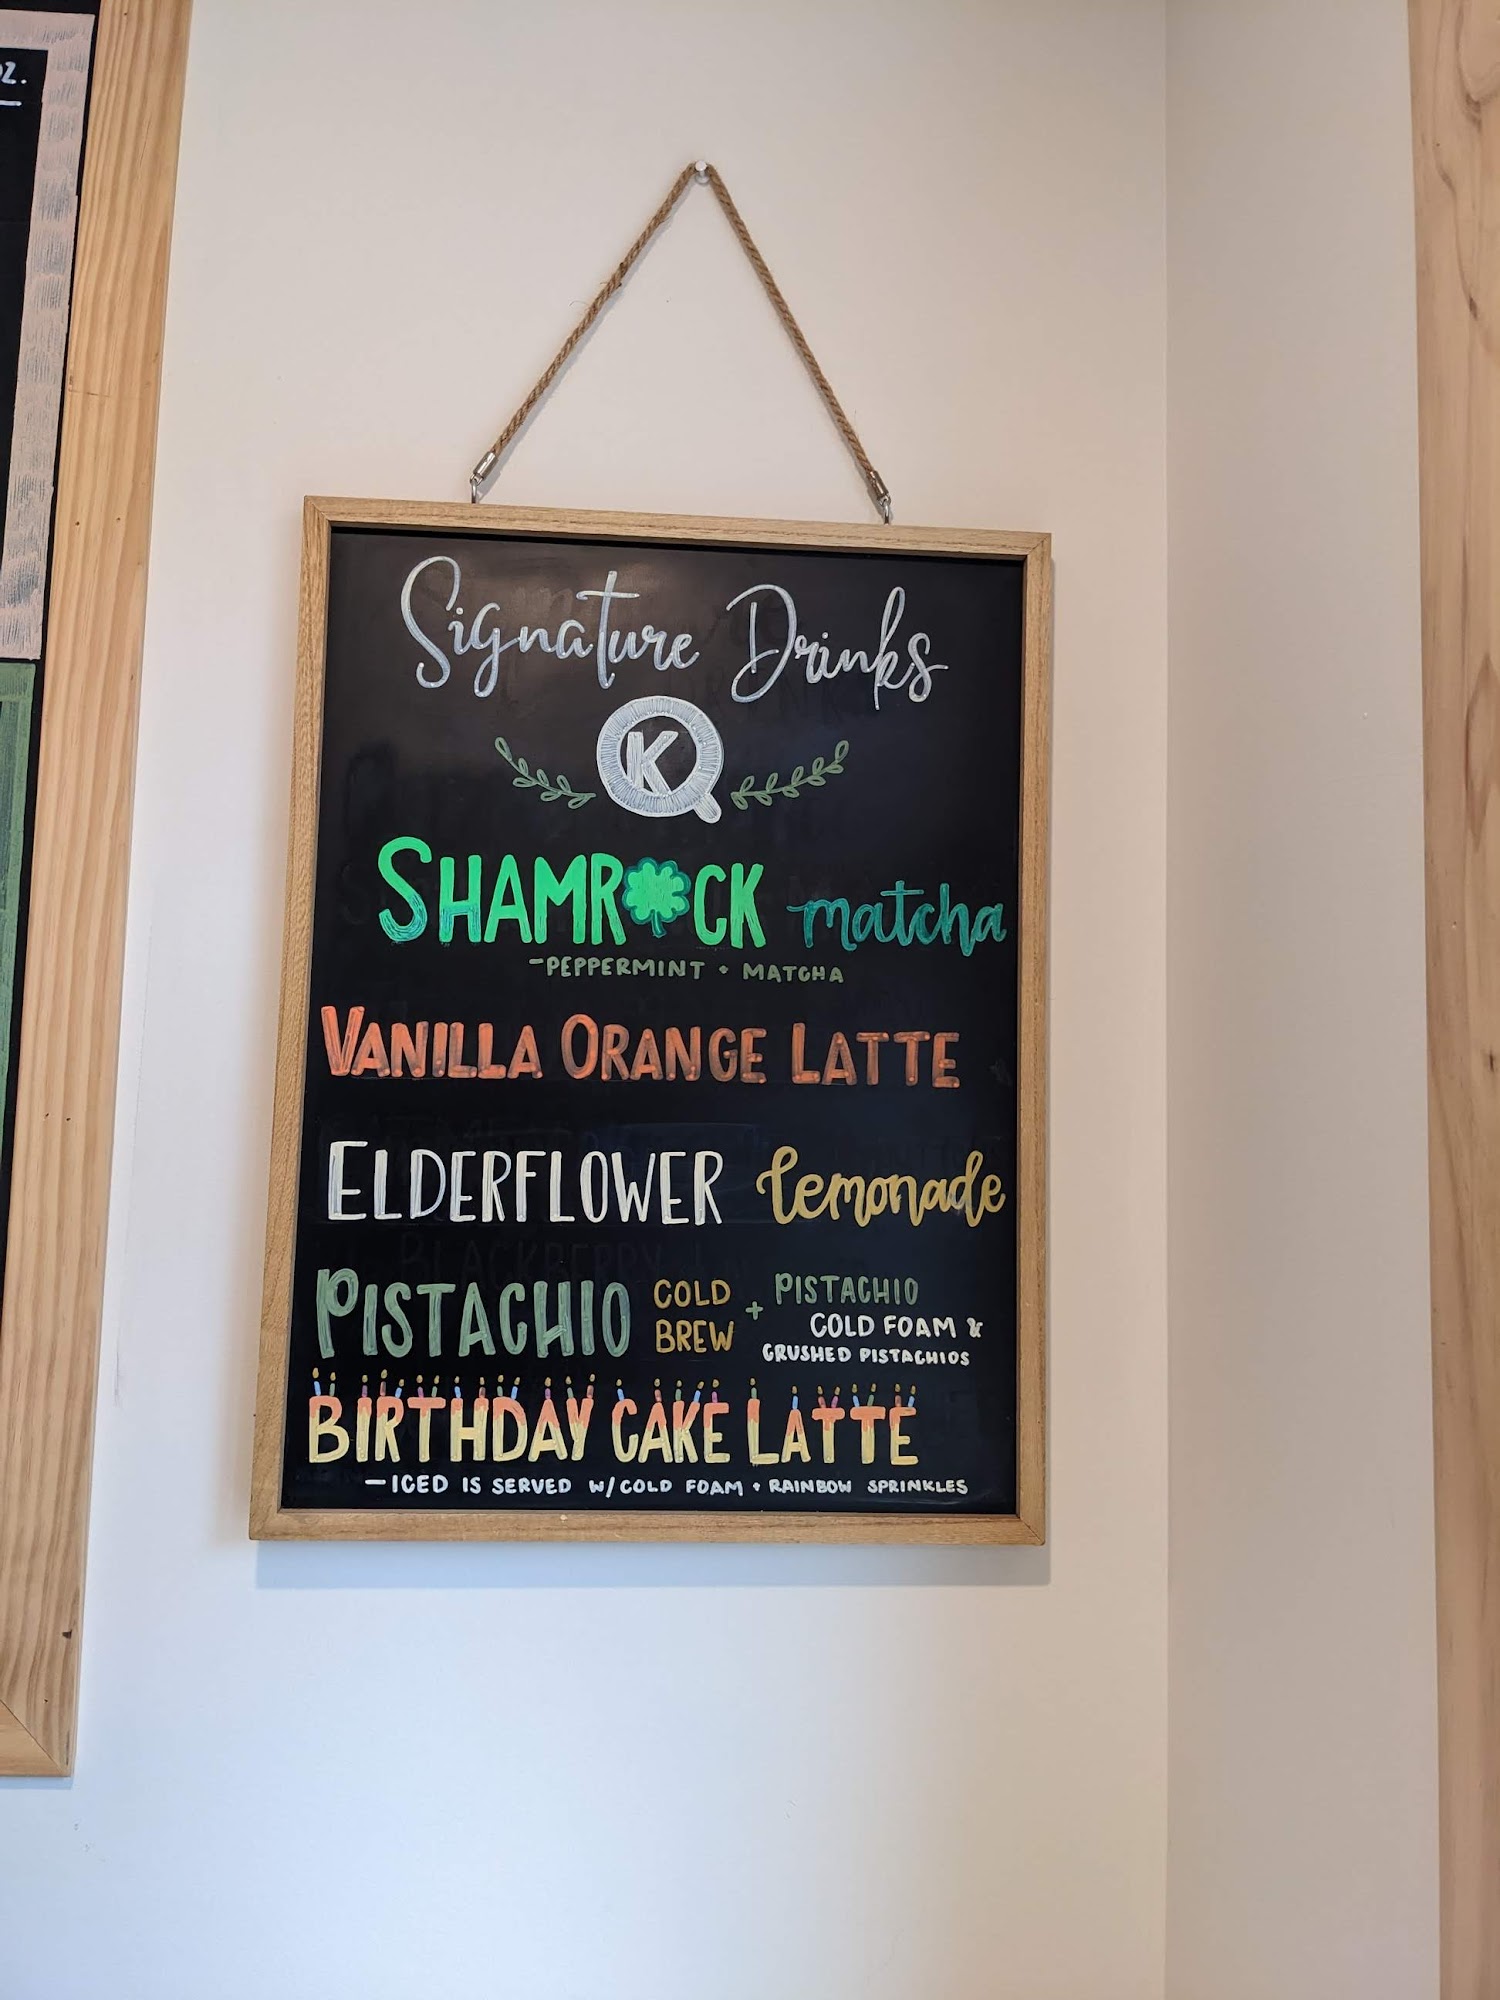 oz.
Signature Drinks
K
SHAMROCK matcha
-PEPPERMINT • MATCHA
VANILLA ORANGE LATTE
ELDERFLOWER lemonade
PISTACHIO COLD BREW + PISTACHIO COLD FOAM & CRUSHED PISTACHIOS
BIRTHDAY CAKE LATTE
-ICED IS SERVED W/COLD FOAM + RAINBOW SPRINKLES